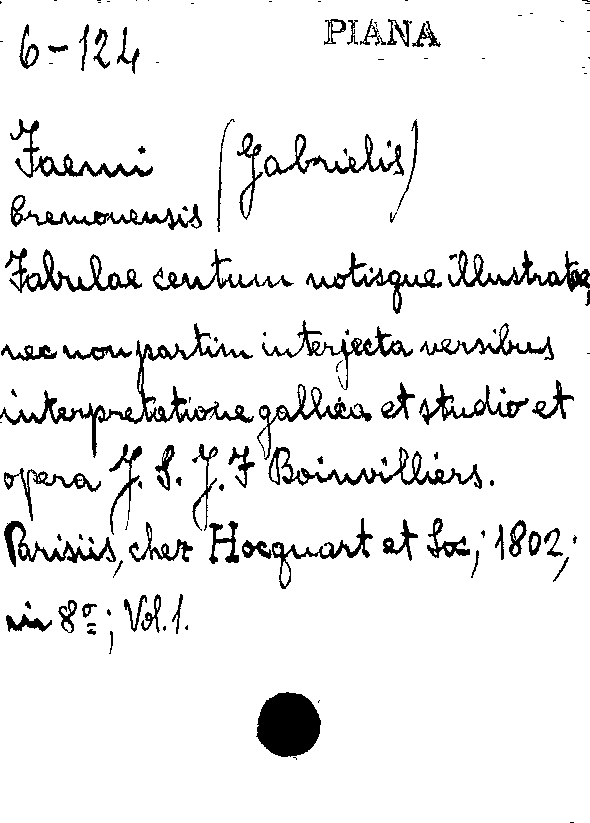 6-124 PIANA
Faerni (Gabrielis)
Cremonensis
Fabulae centum notisque illustratae,
nec non partim interjecta versibus
interpretatione gallica et studio et
opera J. S. J. F Boinvilliers.
Parisiis, chez Hocquart et Soc; 1802;
in 8º; Vol. 1.